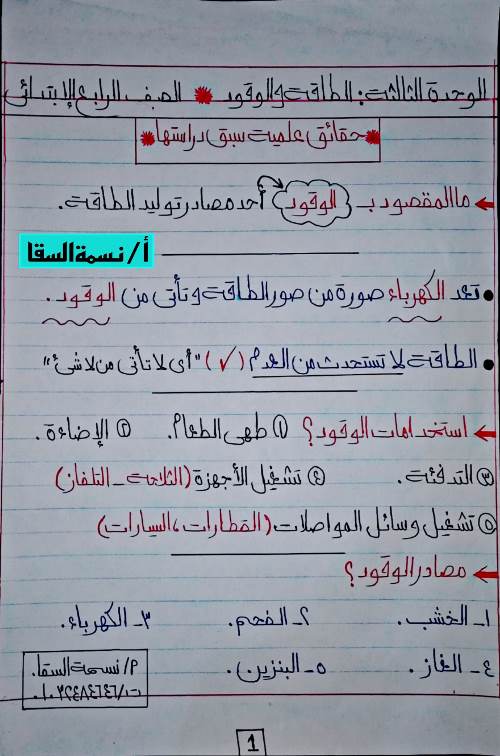 الوحدة الثالثة: الطاقة والوقود * الصف الرابع الإبتدائى
* حقائق علمية سبق دراستها *
← ما المقصود بـ الوقود أحد مصادر توليد الطاقة.
أ/ نسمة السقا
• تعد الكهرباء صورة من صور الطاقة وتأتى من الوقود.
• الطاقة لا تستحدث من العدم (✓) "أى لا تأتى من لا شئ"
← استخدامات الوقود؟ ① طهى الطعام. ② الإضاءة.
③ التدفئة. ④ تشغيل الأجهزة (الثلاجة - التلفاز)
⑤ تشغيل وسائل المواصلات (القطارات، السيارات)
← مصادر الوقود؟
١- الخشب. ٢- الفحم. ٣- الكهرباء.
٤- الغاز. ٥- البنزين.
م/ نسمة السقا.
1